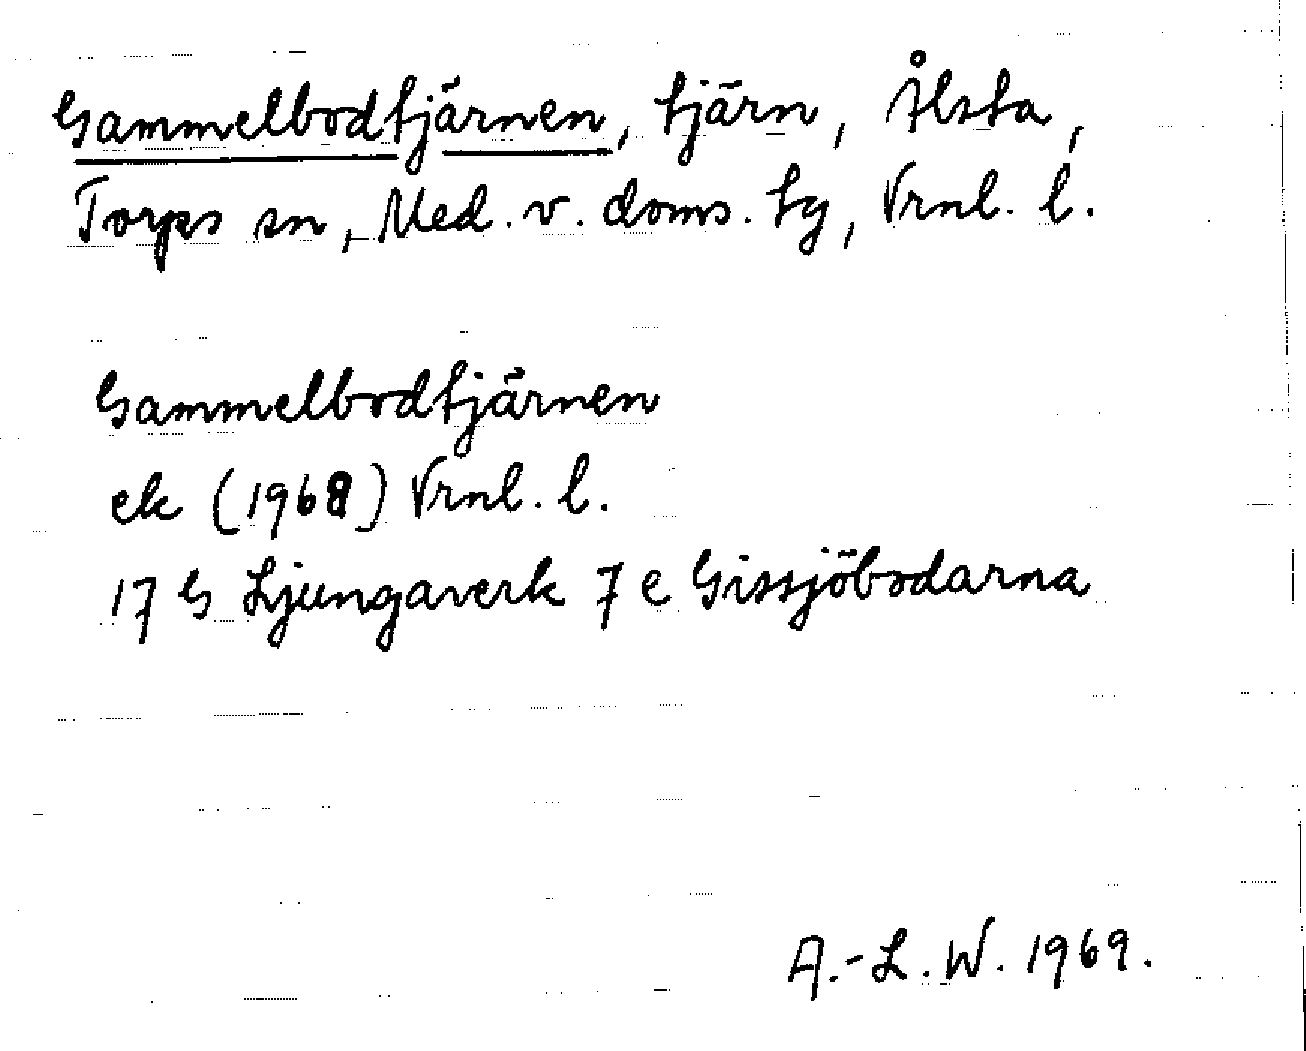 Gammelbodtjärnen, tjärn, Ålsta,
Torps sn, Med. v. doms. tg, Vrnl. l.
Gammelbodtjärnen
ek (1968) Vrnl. l.
17 G Ljungaverk 7 e Gissjöbodarna
A.-L. W. 1969.